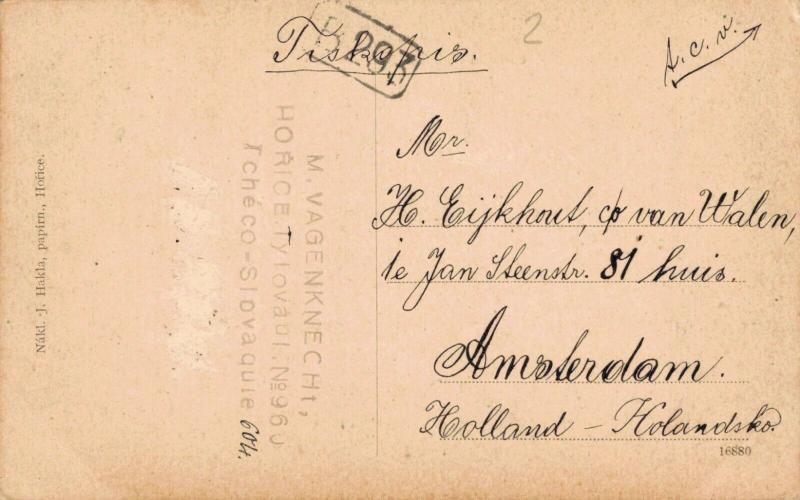 Tiskopis.
2
t.c.v.
Mr.
H. Eijkhout, c/o van Walen,
1e Jan Steenstr. 81 huis.
Amsterdam.
Holland - Holandsko.
16880
M. VAGENKNECHt,
HOŘICE.
Tchéco-Slovaquie 604.
Nákl. J. Hakla, papírn., Hořice.